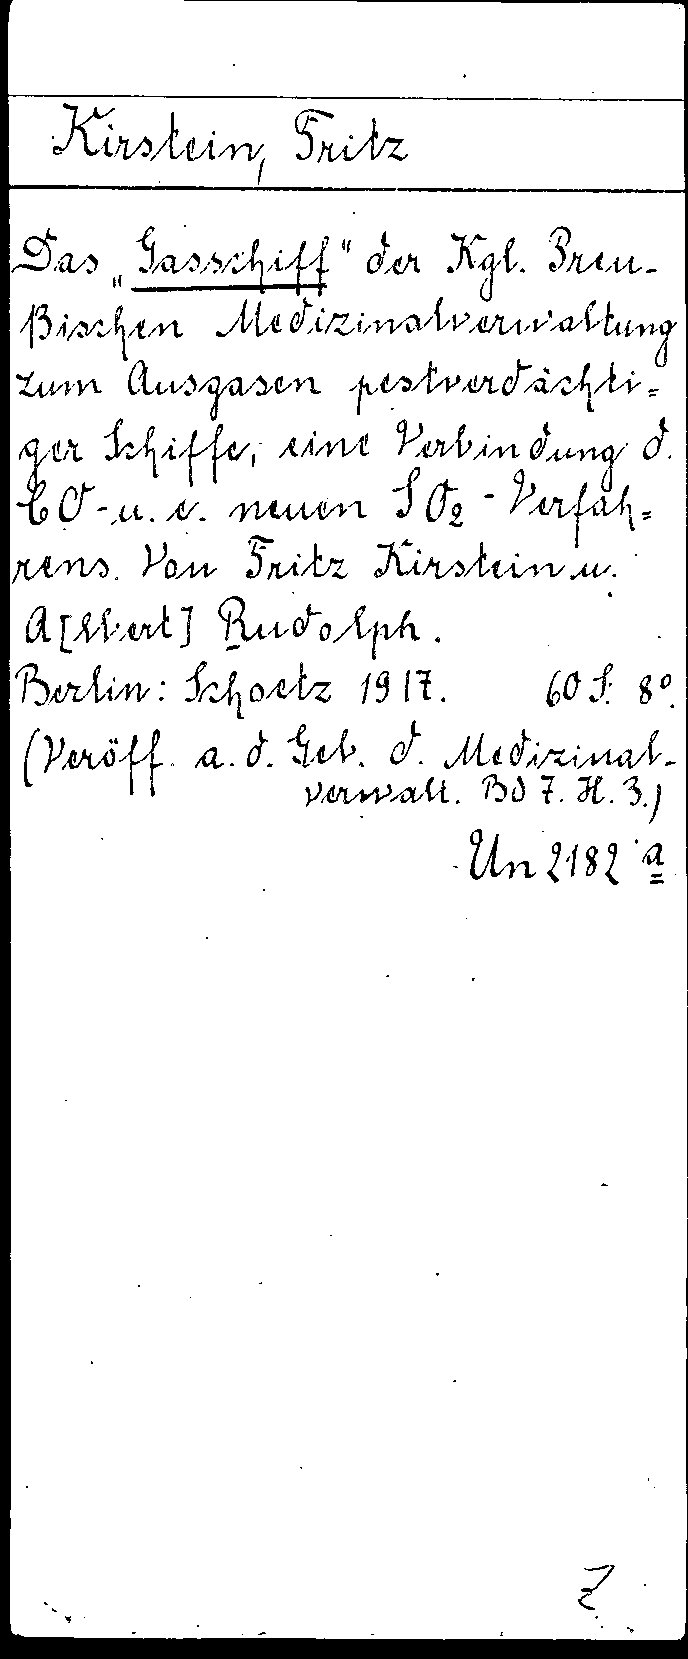 Kirstein, Fritz
Das „Gasschiff" der Kgl. Preu-
ßischen Medizinalverwaltung
zum Ausgasen pestverdächti=
ger Schiffe, eine Verbindung d.
CO-u. e. neuen SO₂-Verfah=
rens. Von Fritz Kirstein u.
A[lbert] Rudolph.
Berlin: Schoetz 1917. 60 S. 8°.
(Veröff. a. d. Geb. d. Medizinal-
verwalt. Bd 7. H. 3.)
Un 2182 a
Z